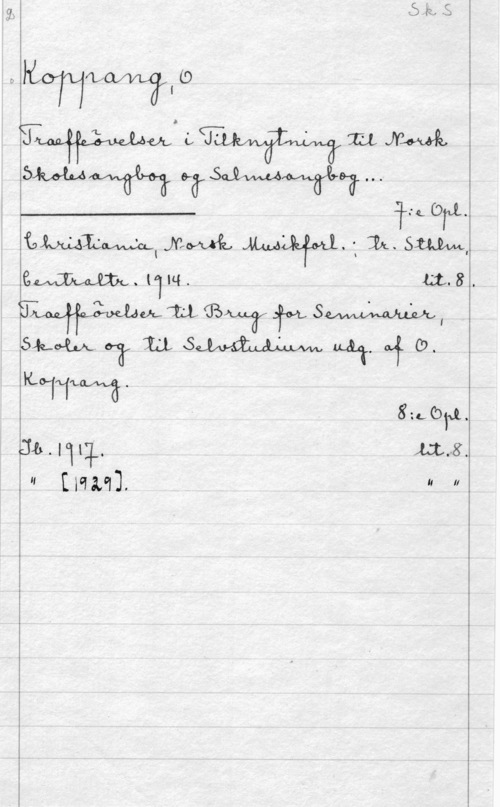 Sk S
Koppang, O
Traeffeövelser i Tilknytning til Norsk
Skolesangbog og Salmesangbog...
7:e Opl.
Christiania, Norsk Musikforl.; tr. Sthlm,
Centraltr. 1914. lit. 8.
Traeffeövelser til Brug for Seminarier,
Skoler og til Selvstudium udg. af O.
Koppang.
8:e Opl.
Ib. 1917. lit. 8.
" [1929]. " "